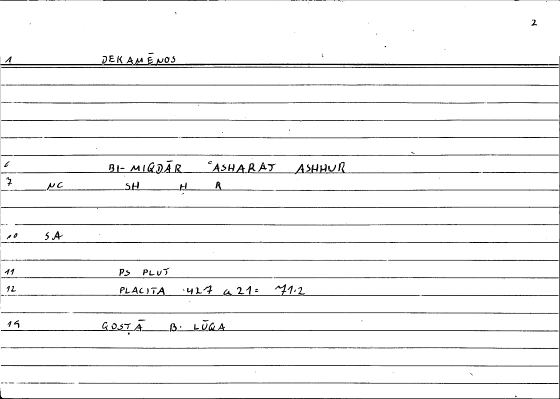 2
1 DEKAMĒNOS
6 BI-MIQDĀR ʿASHARAT ASHHUR
7 NC SH H R
10 SA
11 PS PLUT
12 PLACITA 427 a 21 = 71.2
14 QOSṬĀ B. LŪQA